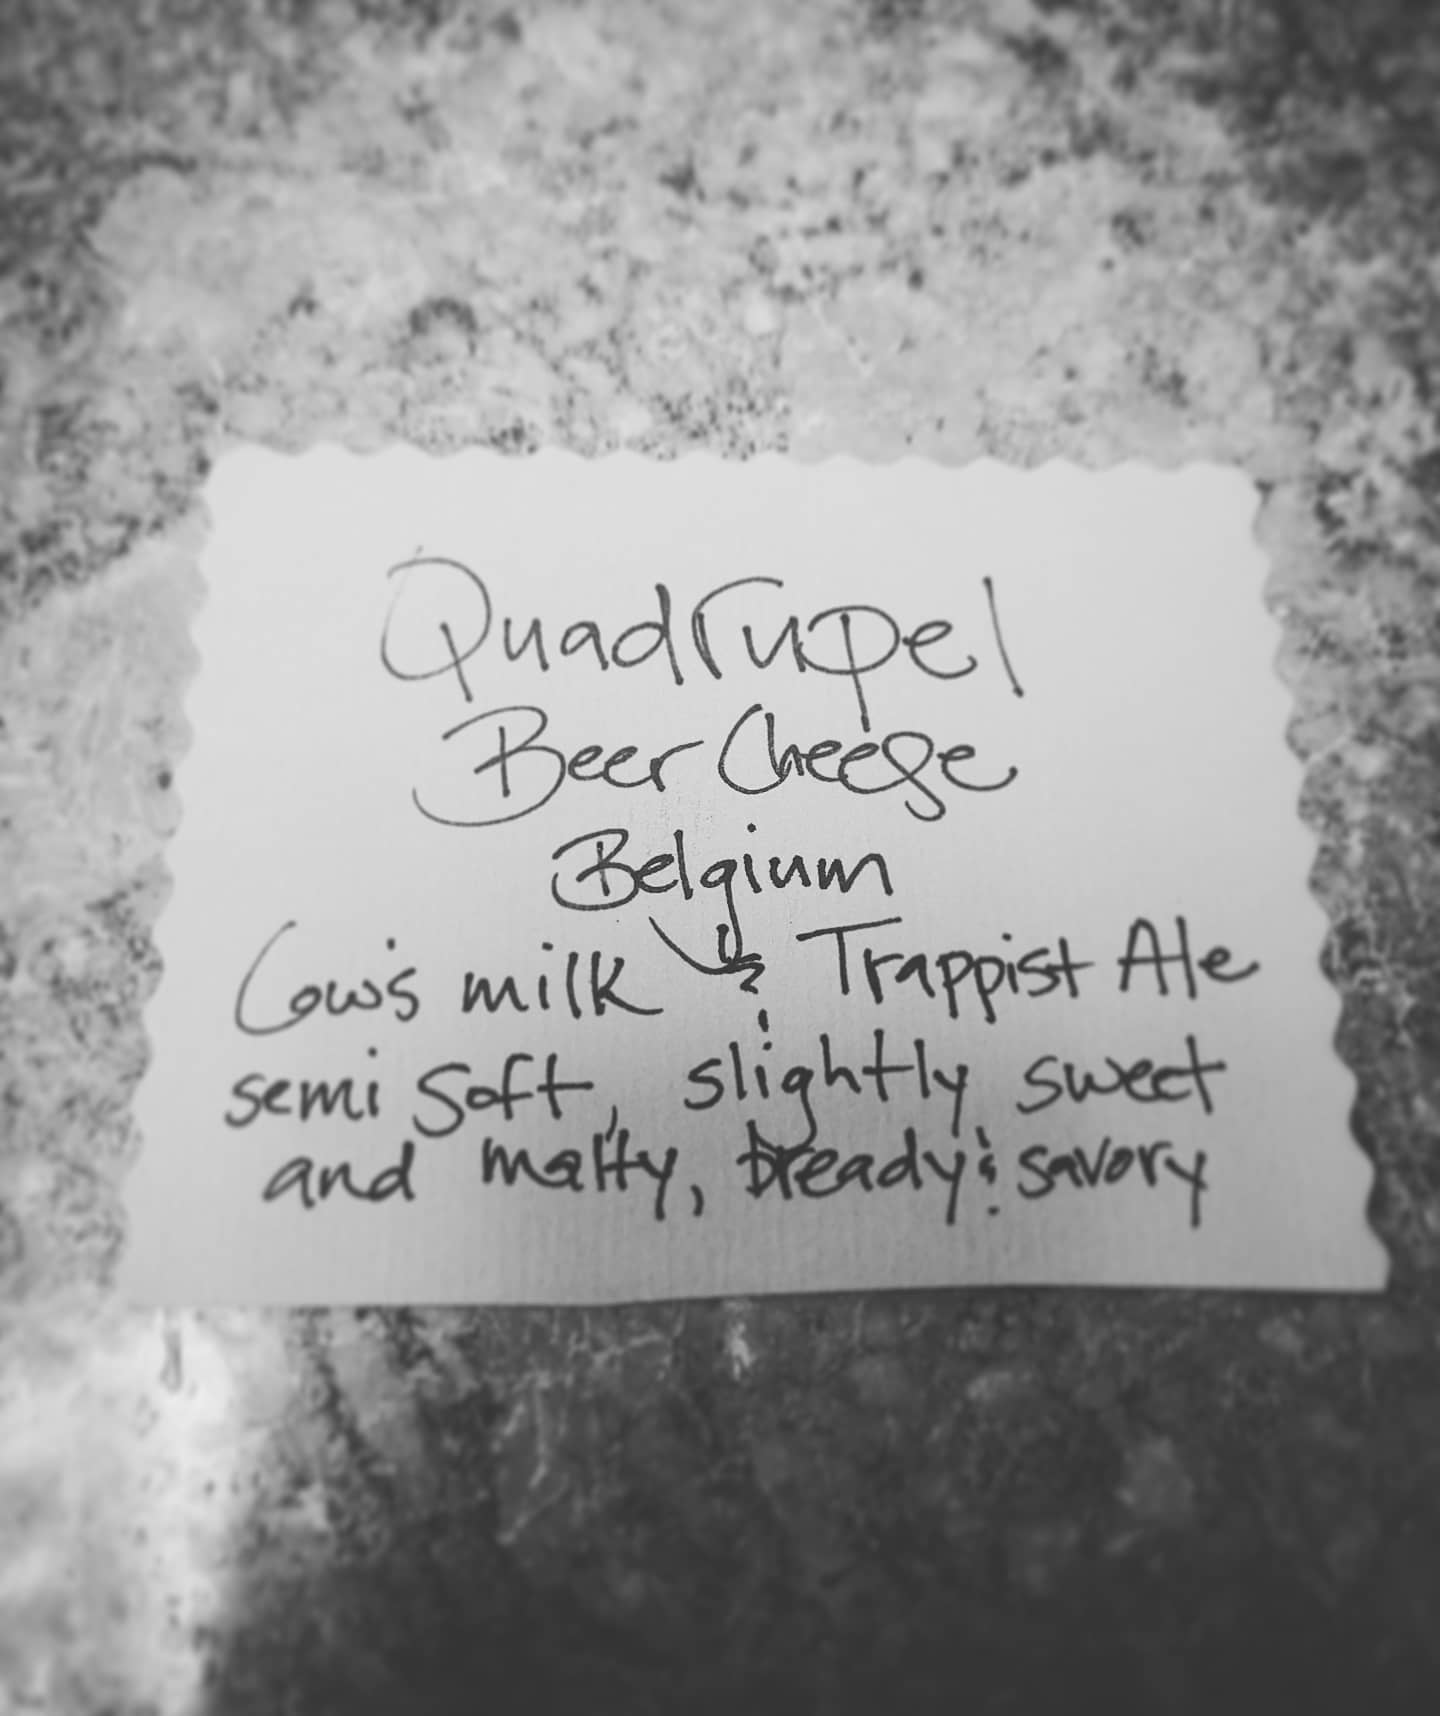 Quadrupel
Beer Cheese
Belgium
Cow's milk & Trappist Ale
semi soft, slightly sweet
and malty, bready & savory